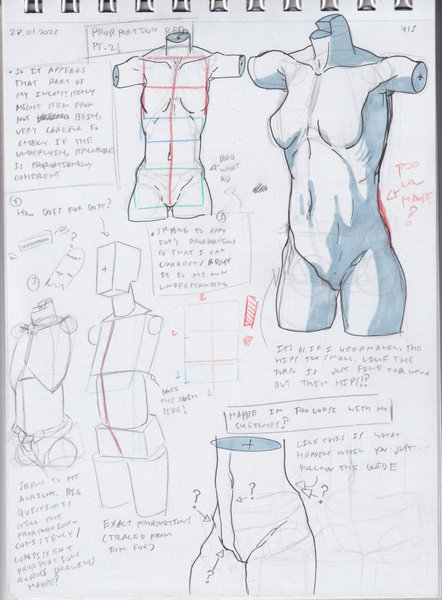 28.01.2025
PROPORTION RED
PT. 2!
415
• SO IT APPEARS
THAT PART OF
MY INCONSISTENCY
MIGHT STEM FROM
NOT BEING
VERY CAREFUL TO
CHECK IF THE
UNDERLYING STRUCTURE
IS PROPORTIONALLY
COHERENT
BRO
WHAT
XD
TOO
LOW
MAYBE
?
1
HOW DOES FOX DO IT?
3
• TRYING TO APPLY
FOX'S PROPORTIONS
SO THAT I CAN
CORRECT/ADAPT
IT TO MY OWN
UNDERSTANDING
?
2
2
1
1
2
NOTE
THE
SIDE!
IT'S AS IF I KEEP MAKING THE
HIPS TOO SMALL. LIKE THE
TORSO IS JUST FINE FOR NOW
BUT THEM HIPS!?
MAYBE IM TOO LOOSE WITH MY
SKETCHES?
LIKE THIS IS WHAT
HAPPEN WHEN YOU JUST
FOLLOW THE GUIDE
?
?
?
?
SEEM TO BE
ALRIGHT. BIG
QUESTION IS
STILL THE
PROPORTION
CONSISTENCY/
CONSISTENT
PROPORTIONS
ACROSS DRAWINGS
MAYBE?
EXACT PROPORTIONS
(TRACED FROM
TOM FOX)